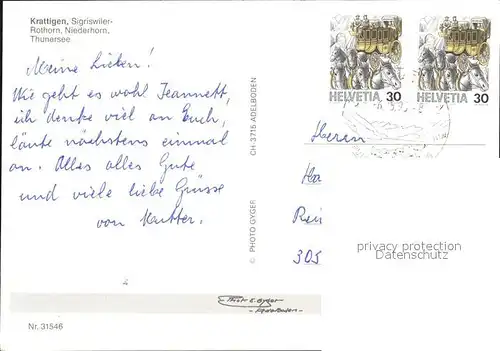 Krattigen, Sigriswiler-
Rothorn, Niederhorn,
Thunersee
Meine Lieben!
Wie geht es wohl Jeannett,
ich denke viel an Euch,
läute nächstens einmal
an. Alles alles Gute
und viele liebe Grüsse
von Mutter.
© PHOTO GYGER CH-3715 ADELBODEN
HELVETIA 30
HELVETIA 30
Herrn
Ha
Rei
305
privacy protection
Datenschutz
Gyger
- Adelboden -
Nr. 31546